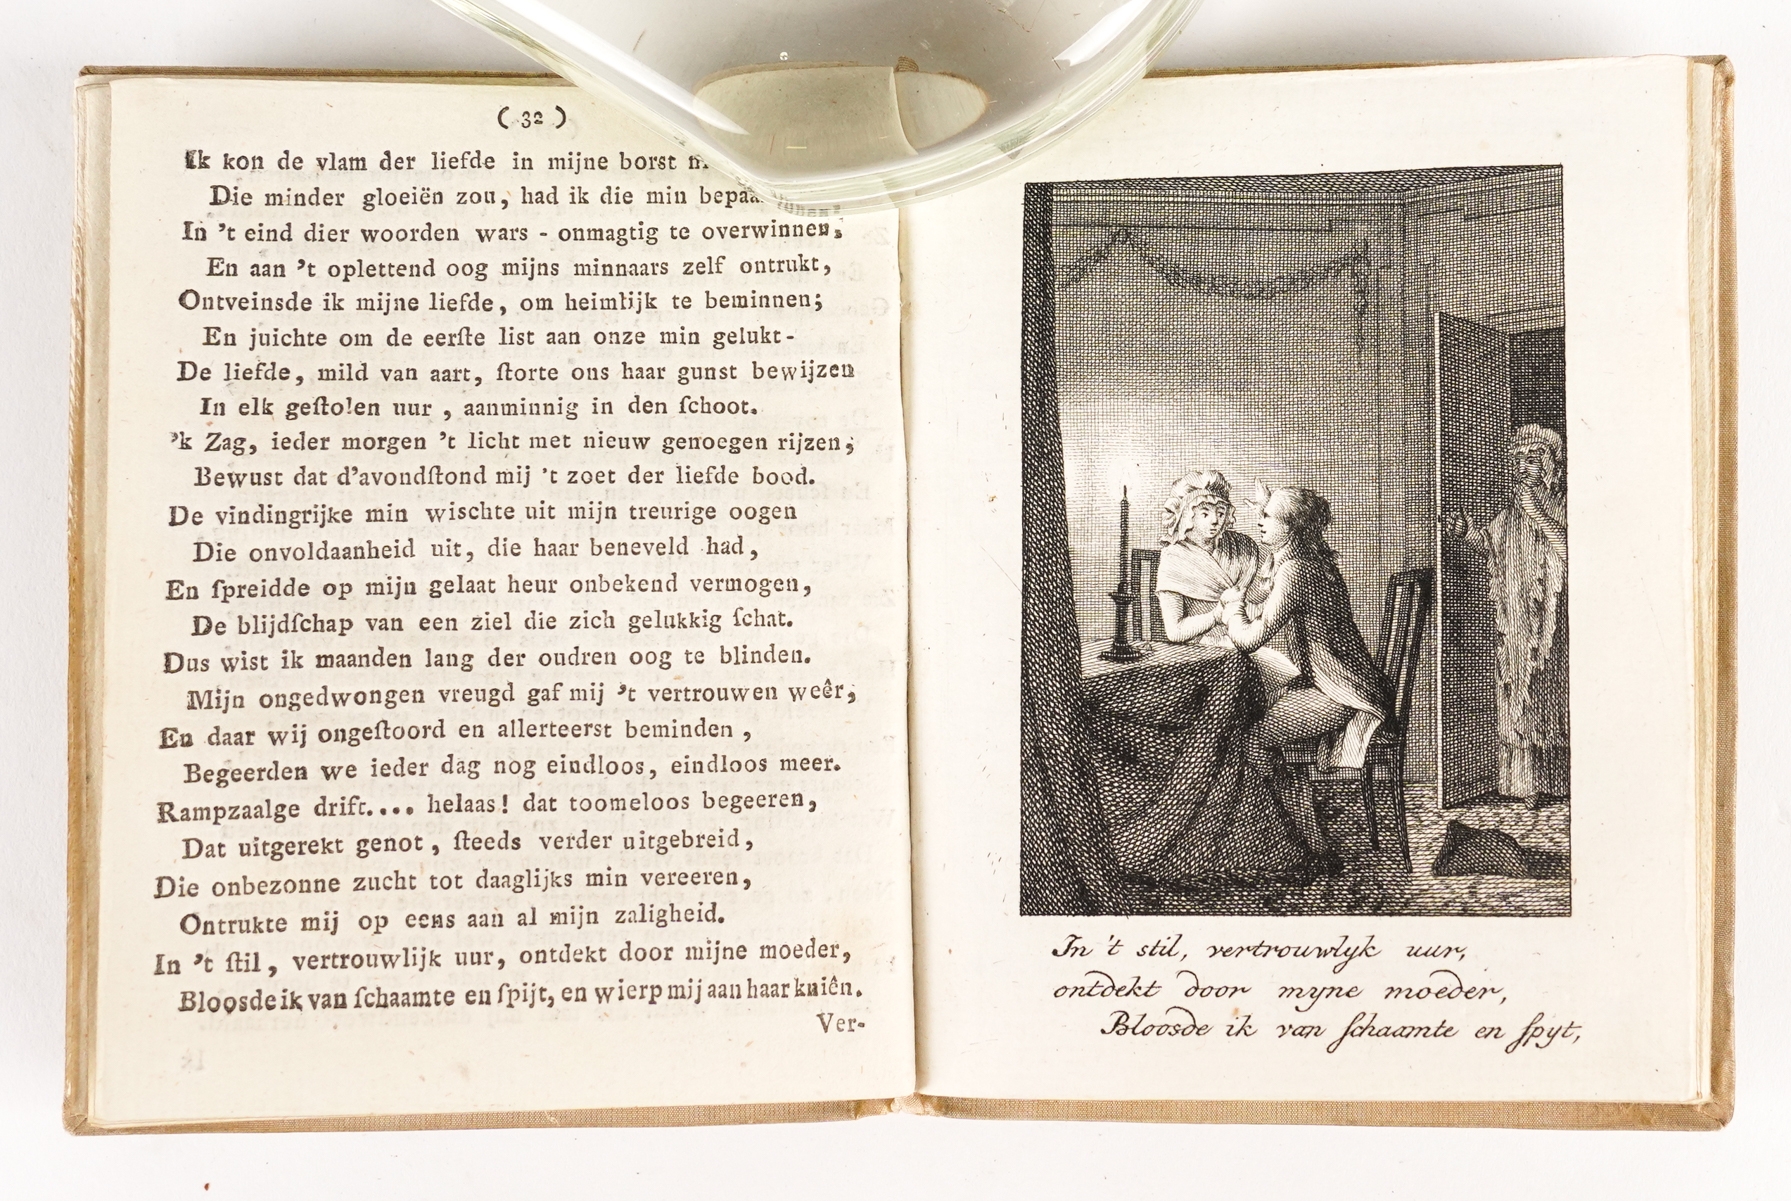 ( 32 )
Ik kon de vlam der liefde in mijne borst
Die minder gloeiën zou, had ik die min
In 't eind dier woorden wars - onmagtig te overwinnen,
En aan 't oplettend oog mijns minnaars zelf ontrukt,
Ontveinsde ik mijne liefde, om heimlijk te beminnen;
En juichte om de eerſte list aan onze min gelukt-
De liefde, mild van aart, ſtorte ons haar gunst bewijzen
In elk geſtolen uur, aanminnig in den ſchoot.
'k Zag, ieder morgen 't licht met nieuw genoegen rijzen,
Bewust dat d'avondſtond mij 't zoet der liefde bood.
De vindingrijke min wischte uit mijn treurige oogen
Die onvoldaanheid uit, die haar beneveld had,
En ſpreidde op mijn gelaat heur onbekend vermogen,
De blijdſchap van een ziel die zich gelukkig ſchat.
Dus wist ik maanden lang der oudren oog te blinden.
Mijn ongedwongen vreugd gaf mij 't vertrouwen weêr,
En daar wij ongeſtoord en allerteerst beminden,
Begeerden we ieder dag nog eindloos, eindloos meer.
Rampzaalge drift.... helaas! dat toomeloos begeeren,
Dat uitgerekt genot, ſteeds verder uitgebreid,
Die onbezonne zucht tot daaglijks min vereeren,
Ontrukte mij op eens aan al mijn zaligheid.
In 't ſtil, vertrouwlijk uur, ontdekt door mijne moeder,
Bloosde ik van ſchaamte en ſpijt, en wierp mij aan haar kniên.
Ver-
In 't stil, vertrouwlyk uur,
ontdekt door myne moeder,
Bloosde ik van ſchaamte en ſpyt,